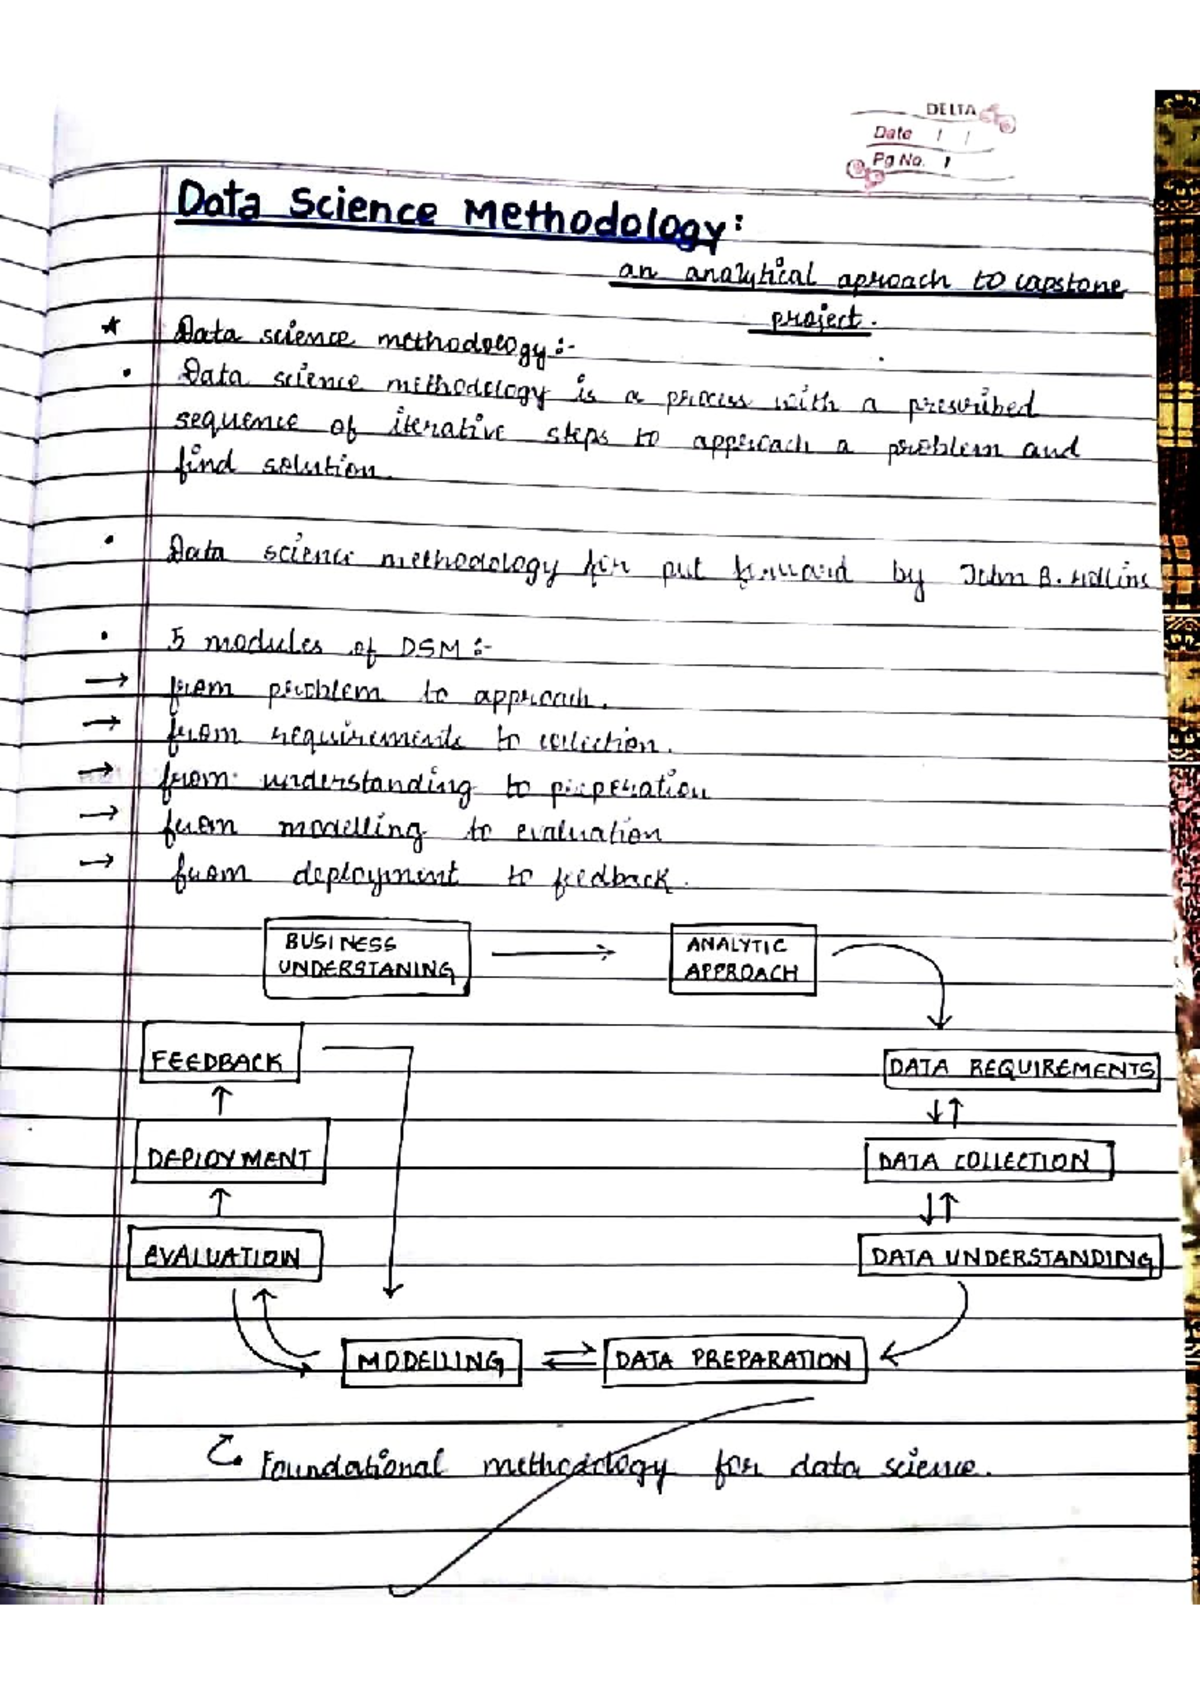 DELTA
Date / /
Pg No. 1
Data Science Methodology:
an analytical aproach to capstone
project.
★ Data science methodology:-
• Data science methodology is a process with a prescribed
sequence of iterative steps to approach a problem and
find solution.
• Data science methodology for put forward by John B. Rollins
• 5 modules of DSM:-
→ from problem to approach.
→ from requirements to collection.
→ from understanding to preperation
→ from modelling to evaluation
→ from deployment to feedback.
BUSINESS
UNDERSTANING
ANALYTIC
APPROACH
FEEDBACK
DATA REQUIREMENTS
DEPLOYMENT
DATA COLLECTION
EVALUATION
DATA UNDERSTANDING
MODELLING
DATA PREPARATION
Foundational methodology for data science.